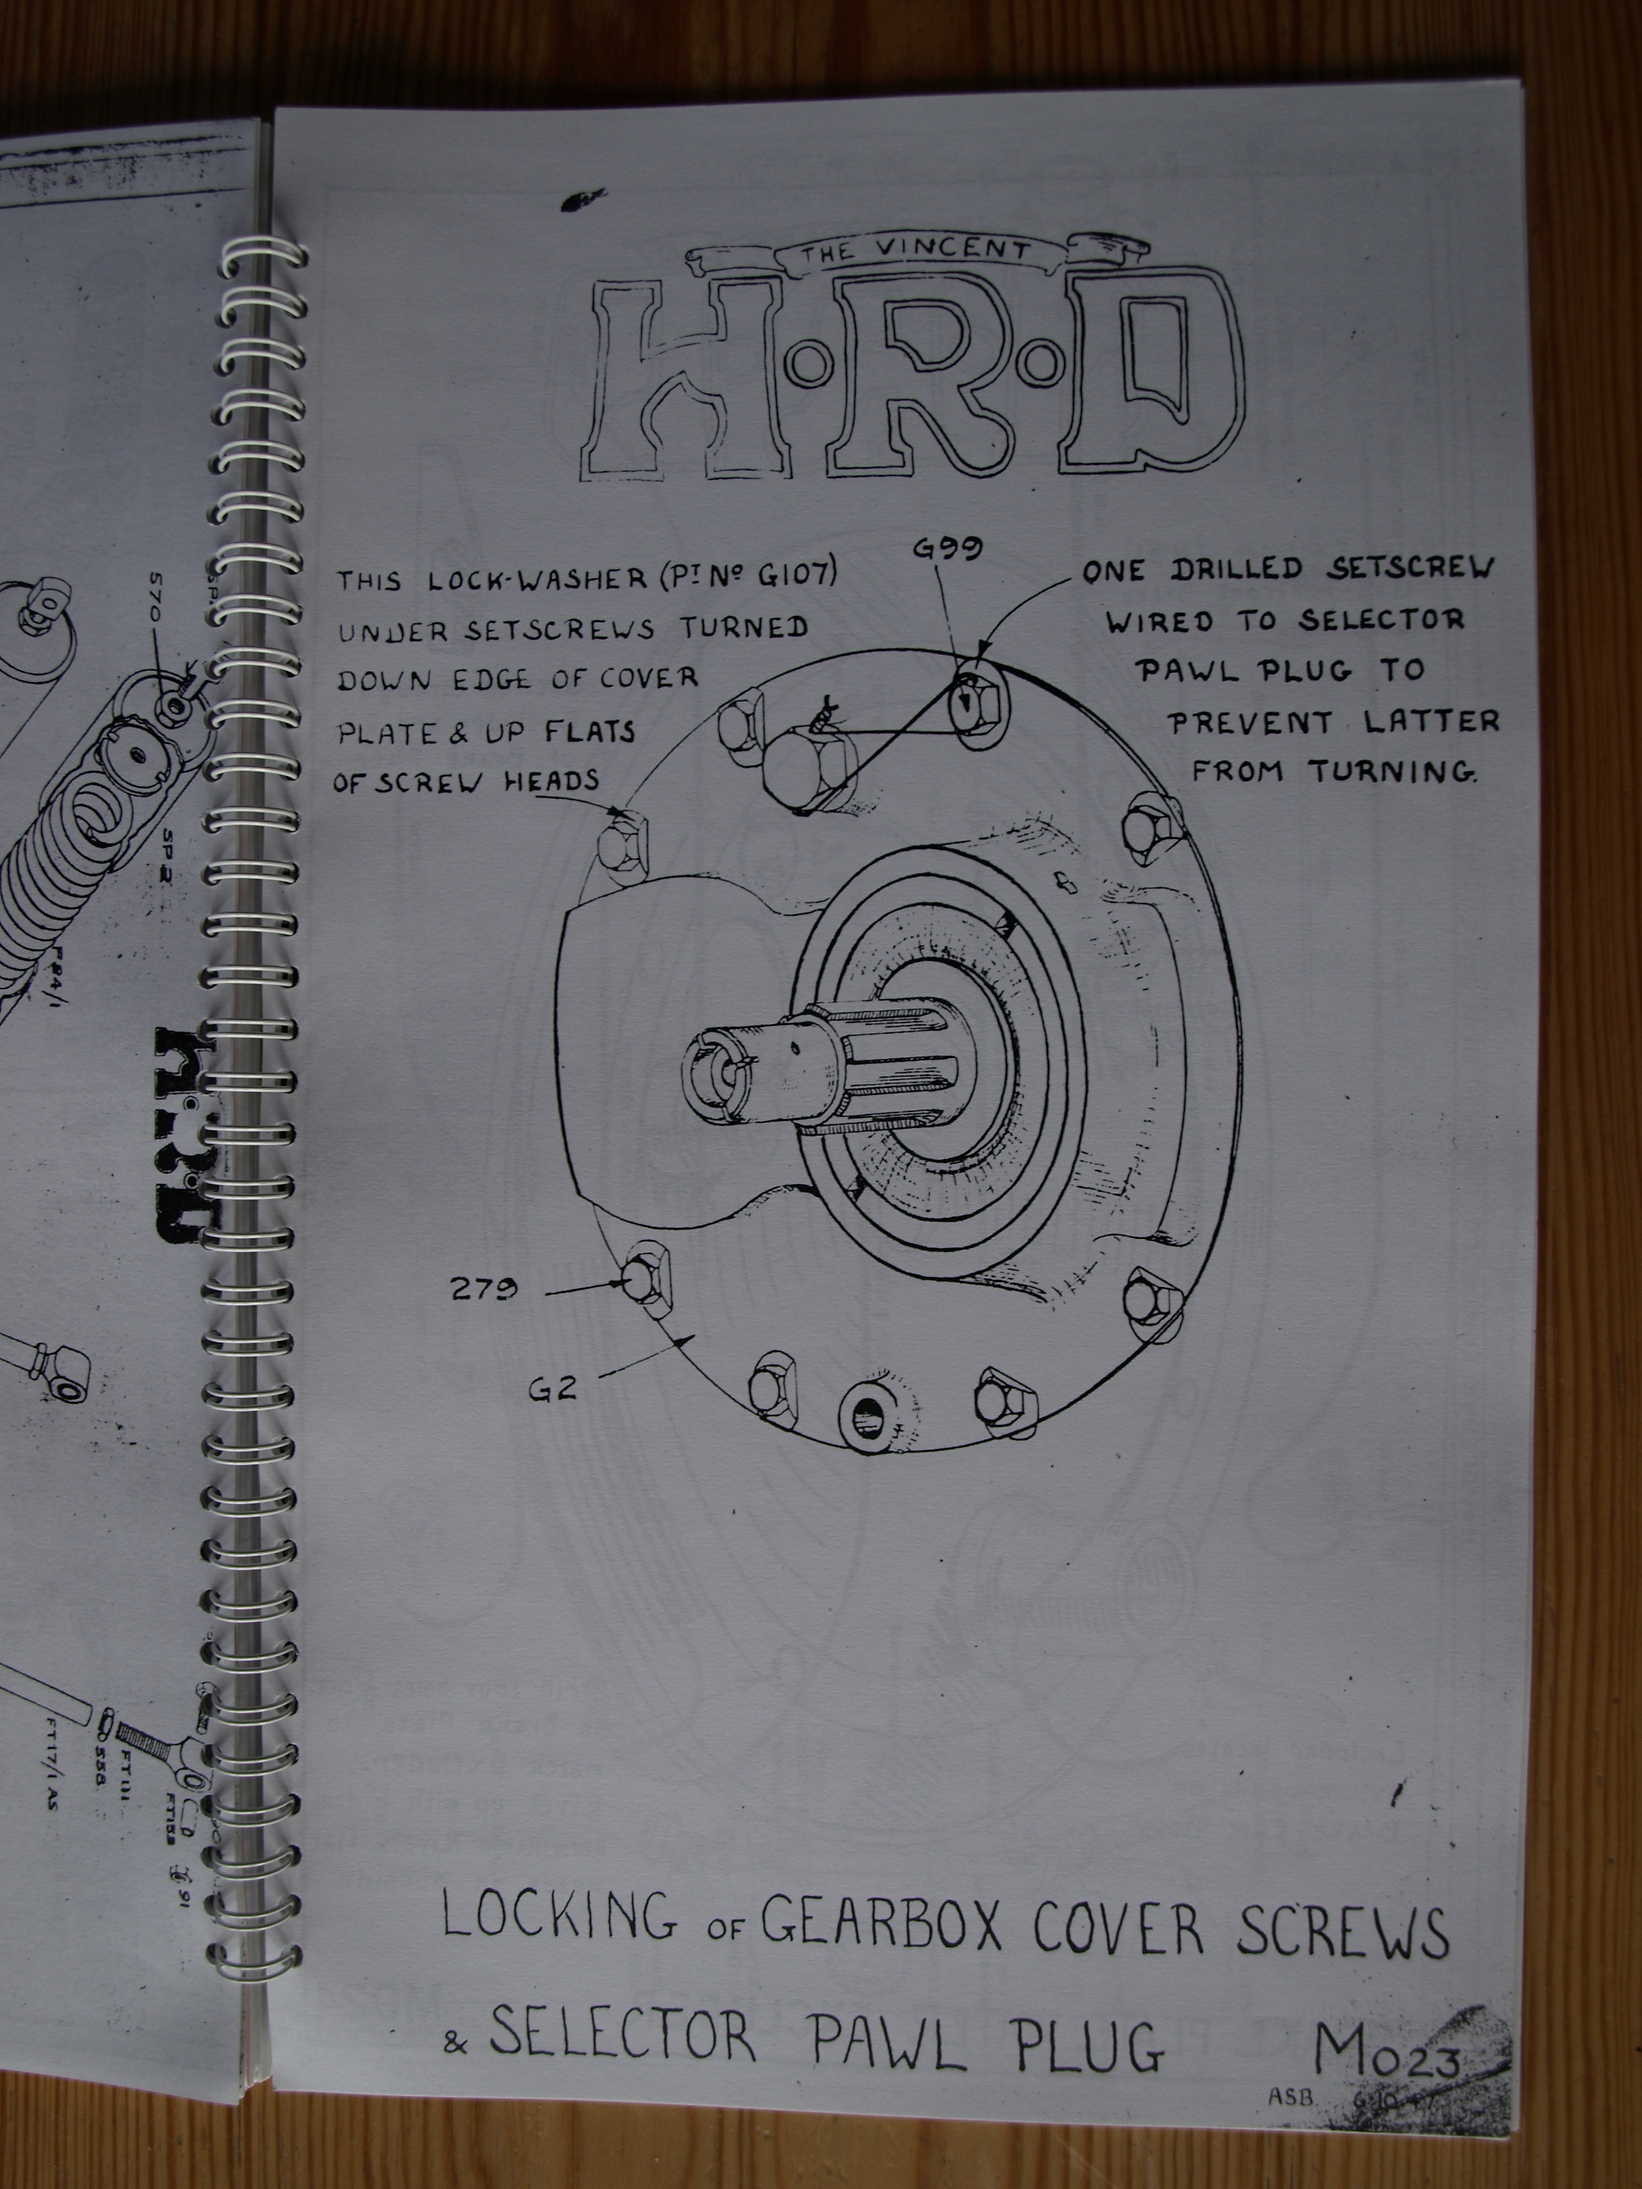 THE VINCENT
H·R·D
G99
THIS LOCK-WASHER (PT No G107)
UNDER SETSCREWS TURNED
DOWN EDGE OF COVER
PLATE & UP FLATS
OF SCREW HEADS
ONE DRILLED SETSCREW
WIRED TO SELECTOR
PAWL PLUG TO
PREVENT LATTER
FROM TURNING.
279
G2
LOCKING OF GEARBOX COVER SCREWS
& SELECTOR PAWL PLUG
M023
ASB
570
SP2
F84/1
HRD
FT17/1 AS
558
FT111
91